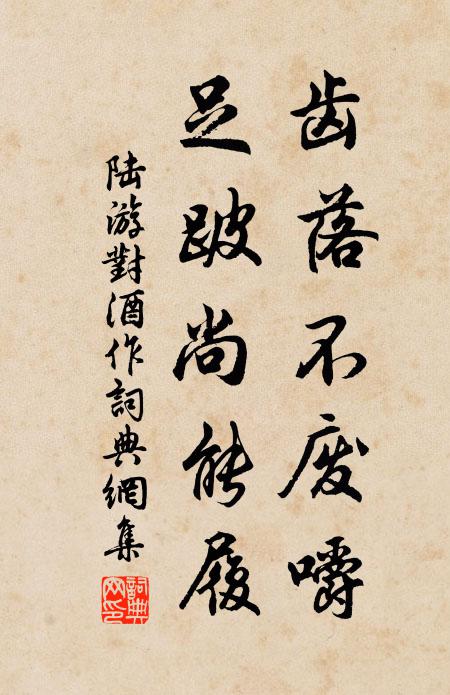 齿落不废嚼
足跛尚能履
陆游對酒作詞典網集
詞典網印